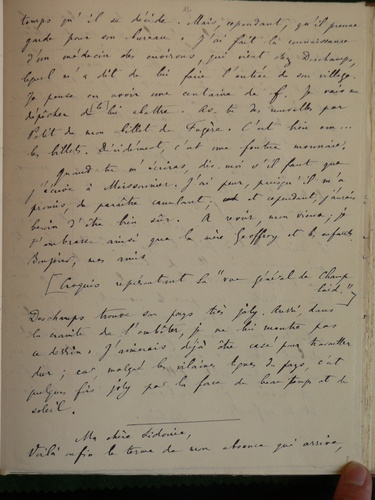 temps qu'il se décide. Mais, cependant, qu'il prenne
garde pour son bureau. J'ai fait la connaissance
d'un médecin des environs, qui vient chez Deschamps,
lequel m'a dit de lui faire l'entrée de son village.
Je pense en avoir une centaine de f. Je vais me
dépêcher de lui abattre. As-tu des nouvelles par
Petit de mon billet de Fugère. C'est bien em...
les billets. Décidément, c'est une foutue monnaie.
Quand tu m'écriras, dis-moi s'il faut que
j'écrive à Meissonnier. J'ai peur, puisqu'il m'a
promis, de paraître canulant, et cependant, j'aurais
besoin d'être bien sûr. A revoir, mon vieux ; je
t'embrasse ainsi que la mère Geoffroy et les enfants.
Bonjour, mes amis
[Croquis représentant la "vue général de Champ
laid."]
Deschamps trouve son pays très joly. Aussi, dans
la crainte de l'embêter, je ne lui montre pas
ce dessin. J'aimerais déjà être casé pour travailler
dur ; car, malgré les vilaines lignes du pays, c'est
quelques fois joly par la force du beau temps et du
soleil.
Ma chère Sidonie,
Voilà enfin le terme de mon absence qui arrive,